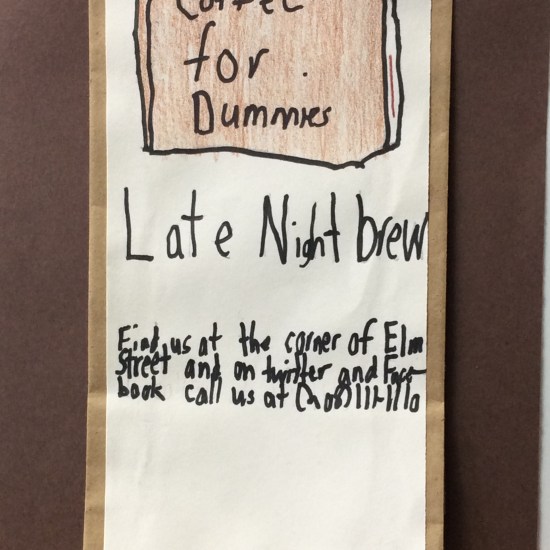 Coffee
for
Dummies
Late Night brew
Find us at the corner of Elm
Street and on twitter and Face-
book call us at (208)111-1110